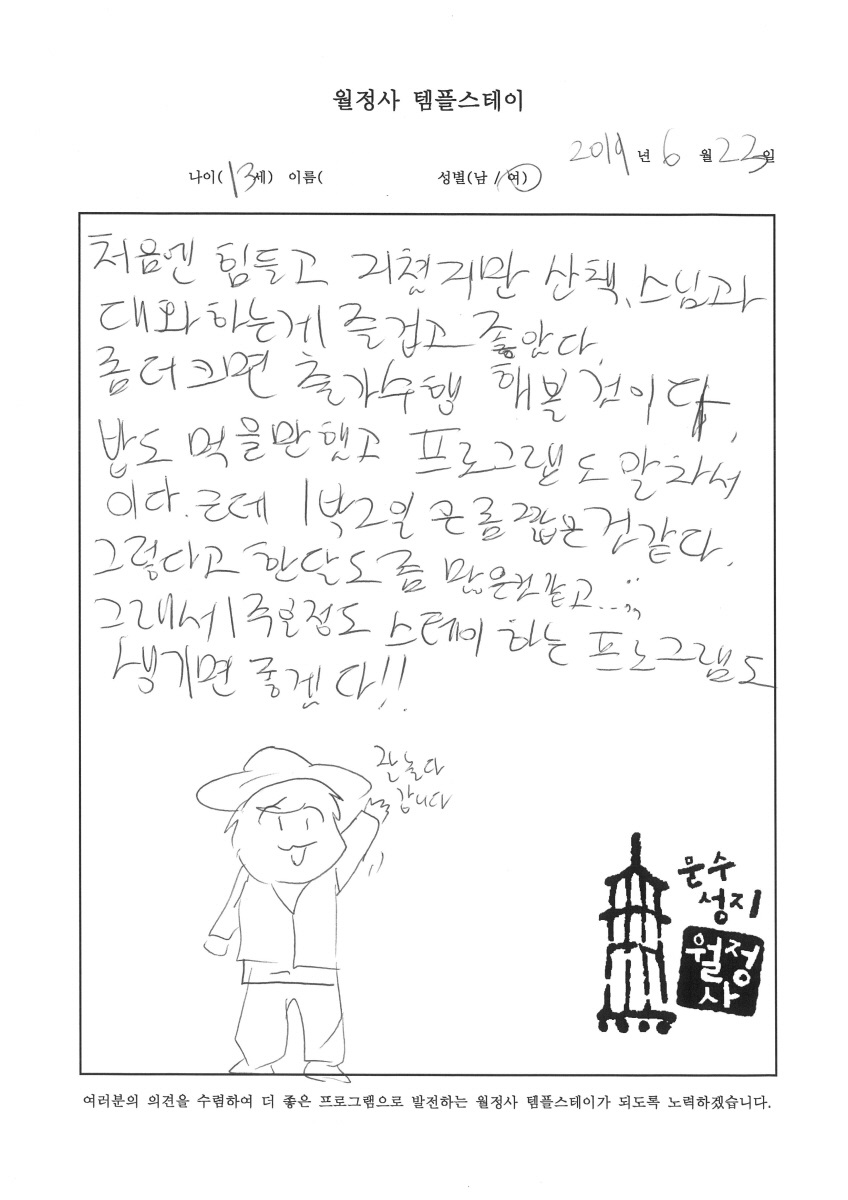 월정사 템플스테이
2019 년 6 월 23 일
나이( 13 세) 이름( 성별(남 / 여)
처음엔 힘들고 지쳤지만 산책, 스님과
대화하는게 즐겁고 좋았다.
좀 더 크면 출가수행 해볼 것이다.
밥도 먹을만했고 프로그램도 알차서
이다. 근데 1박2일은 좀 짧은 것 같다.
그렇다고 한달도 좀 많은것 같고..;;
그래서 1주일정도 스테이 하는 프로그램도
생기면 좋겠다!!
잘 놀다
갑니다
문수
성지
월정
사
여러분의 의견을 수렴하여 더 좋은 프로그램으로 발전하는 월정사 템플스테이가 되도록 노력하겠습니다.